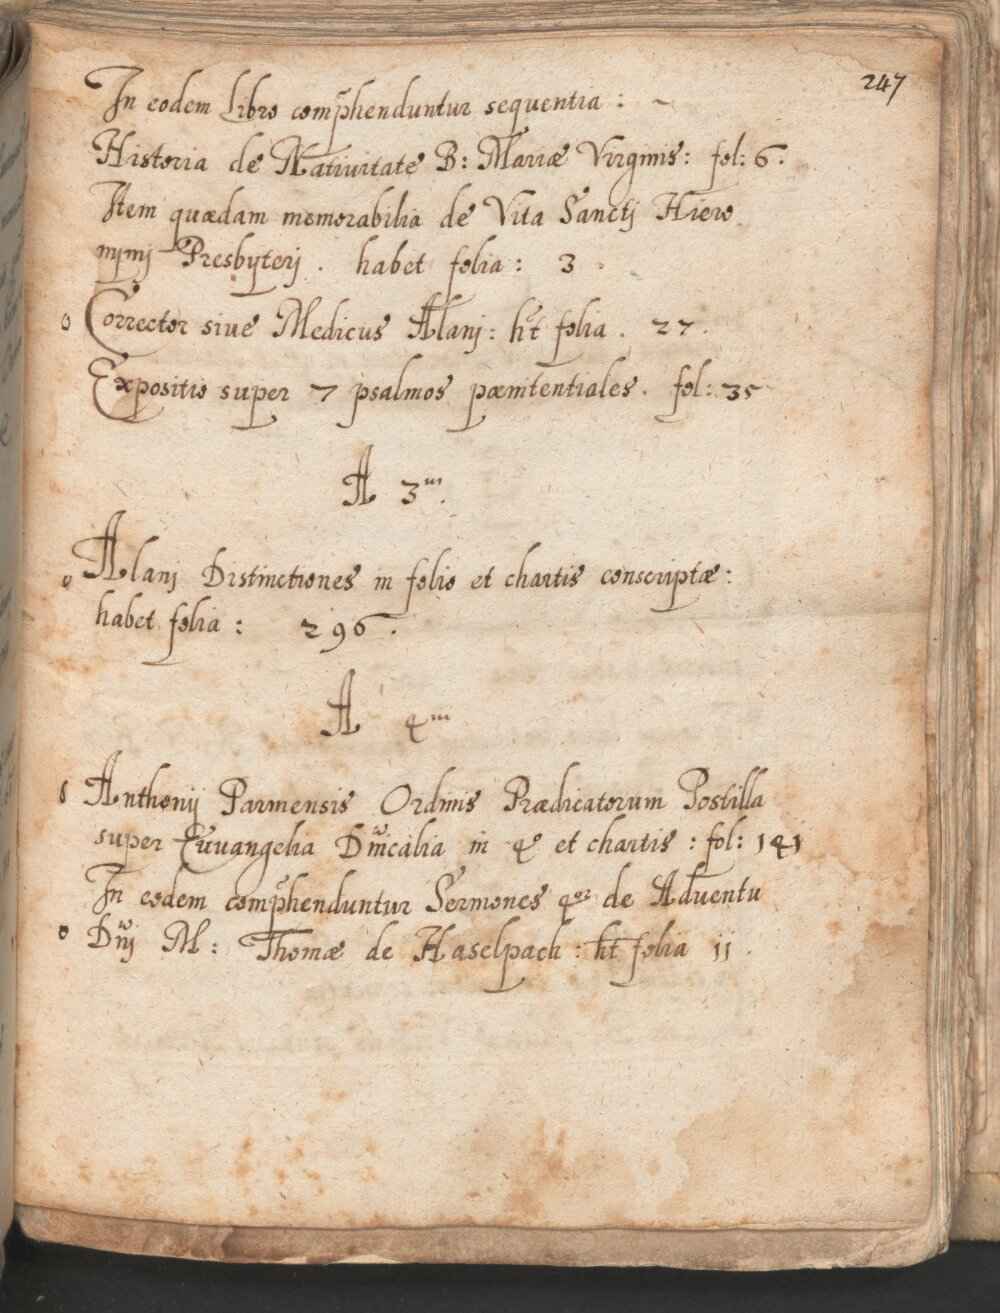 247
In eodem Libro comp̄henduntur sequentia : ~
Historia de Natiuitate B: Mariæ Virginis: fol: 6.
Item quædam memorabilia de Vita Sanctj Hiero
nymj Presbyterj . habet folia : 3 .
o Corrector siue Medicus Alanj : ht folia . 27 .
Expositio super 7 psalmos pænitentiales . fol: 35
A 3m.
o Alanj Distinctiones in folio et chartis conscriptæ :
habet folia : 296 .
A 4m
o Anthonij Parmensis Ordinis Prædicatorum Postilla
super Euuangelia Dn̄icalia in 4o et chartis : fol: 141
In eodem comp̄henduntur Sermones 4or de Aduentu
o Dn̄j M : Thomæ de Haselpach : ht folia 11 .